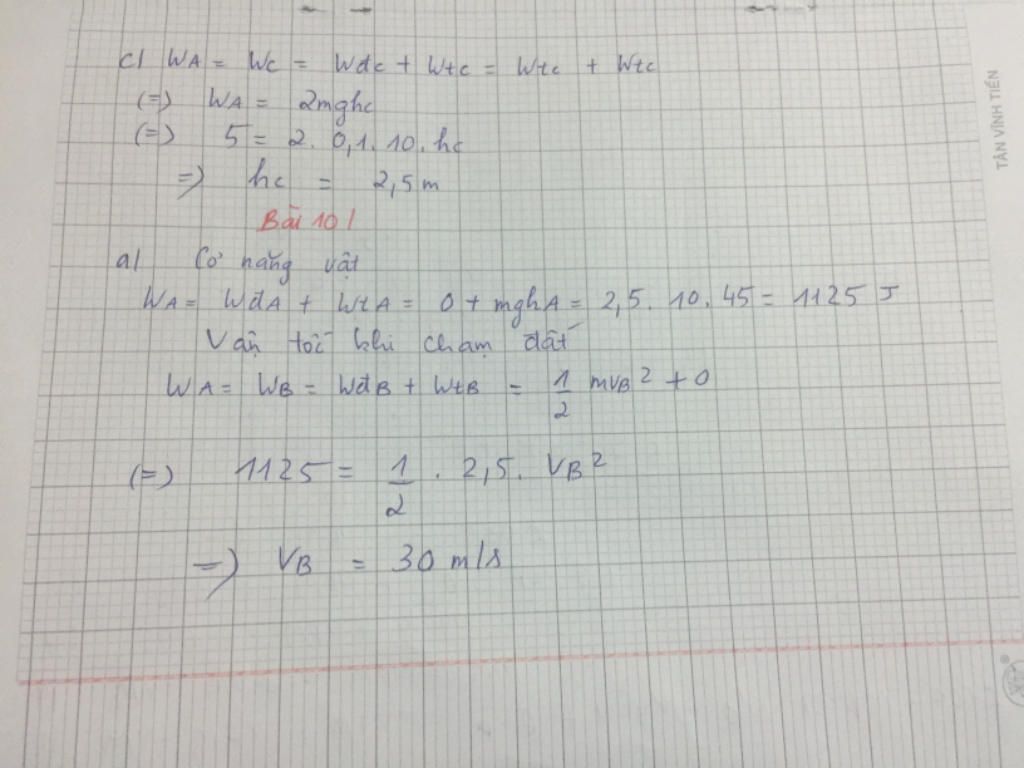 c/ WA = WC = WđC + WtC = WtC + WtC
(=) WA = 2mghC
(=) 5 = 2. 0,1. 10. hC
=) hC = 2,5m
Bài 10/
a/ Cơ năng vật
WA = WđA + WtA = 0 + mghA = 2,5. 10. 45 = 1125 J
Vận tốc khi chạm đất
WA = WB = WđB + WtB = 1/2 mVB² + 0
(=) 1125 = 1/2 . 2,5. VB²
=) VB = 30 m/s
TÂN VĨNH TIẾN